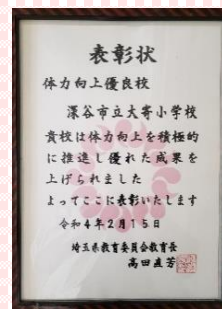 表彰状
体力向上優良校
深谷市立大寄小学校
貴校は体力向上を積極的
に推進し優れた成果を
上げられました
よってここに表彰いたします
令和4年2月15日
埼玉県教育委員会教育長
高田直芳